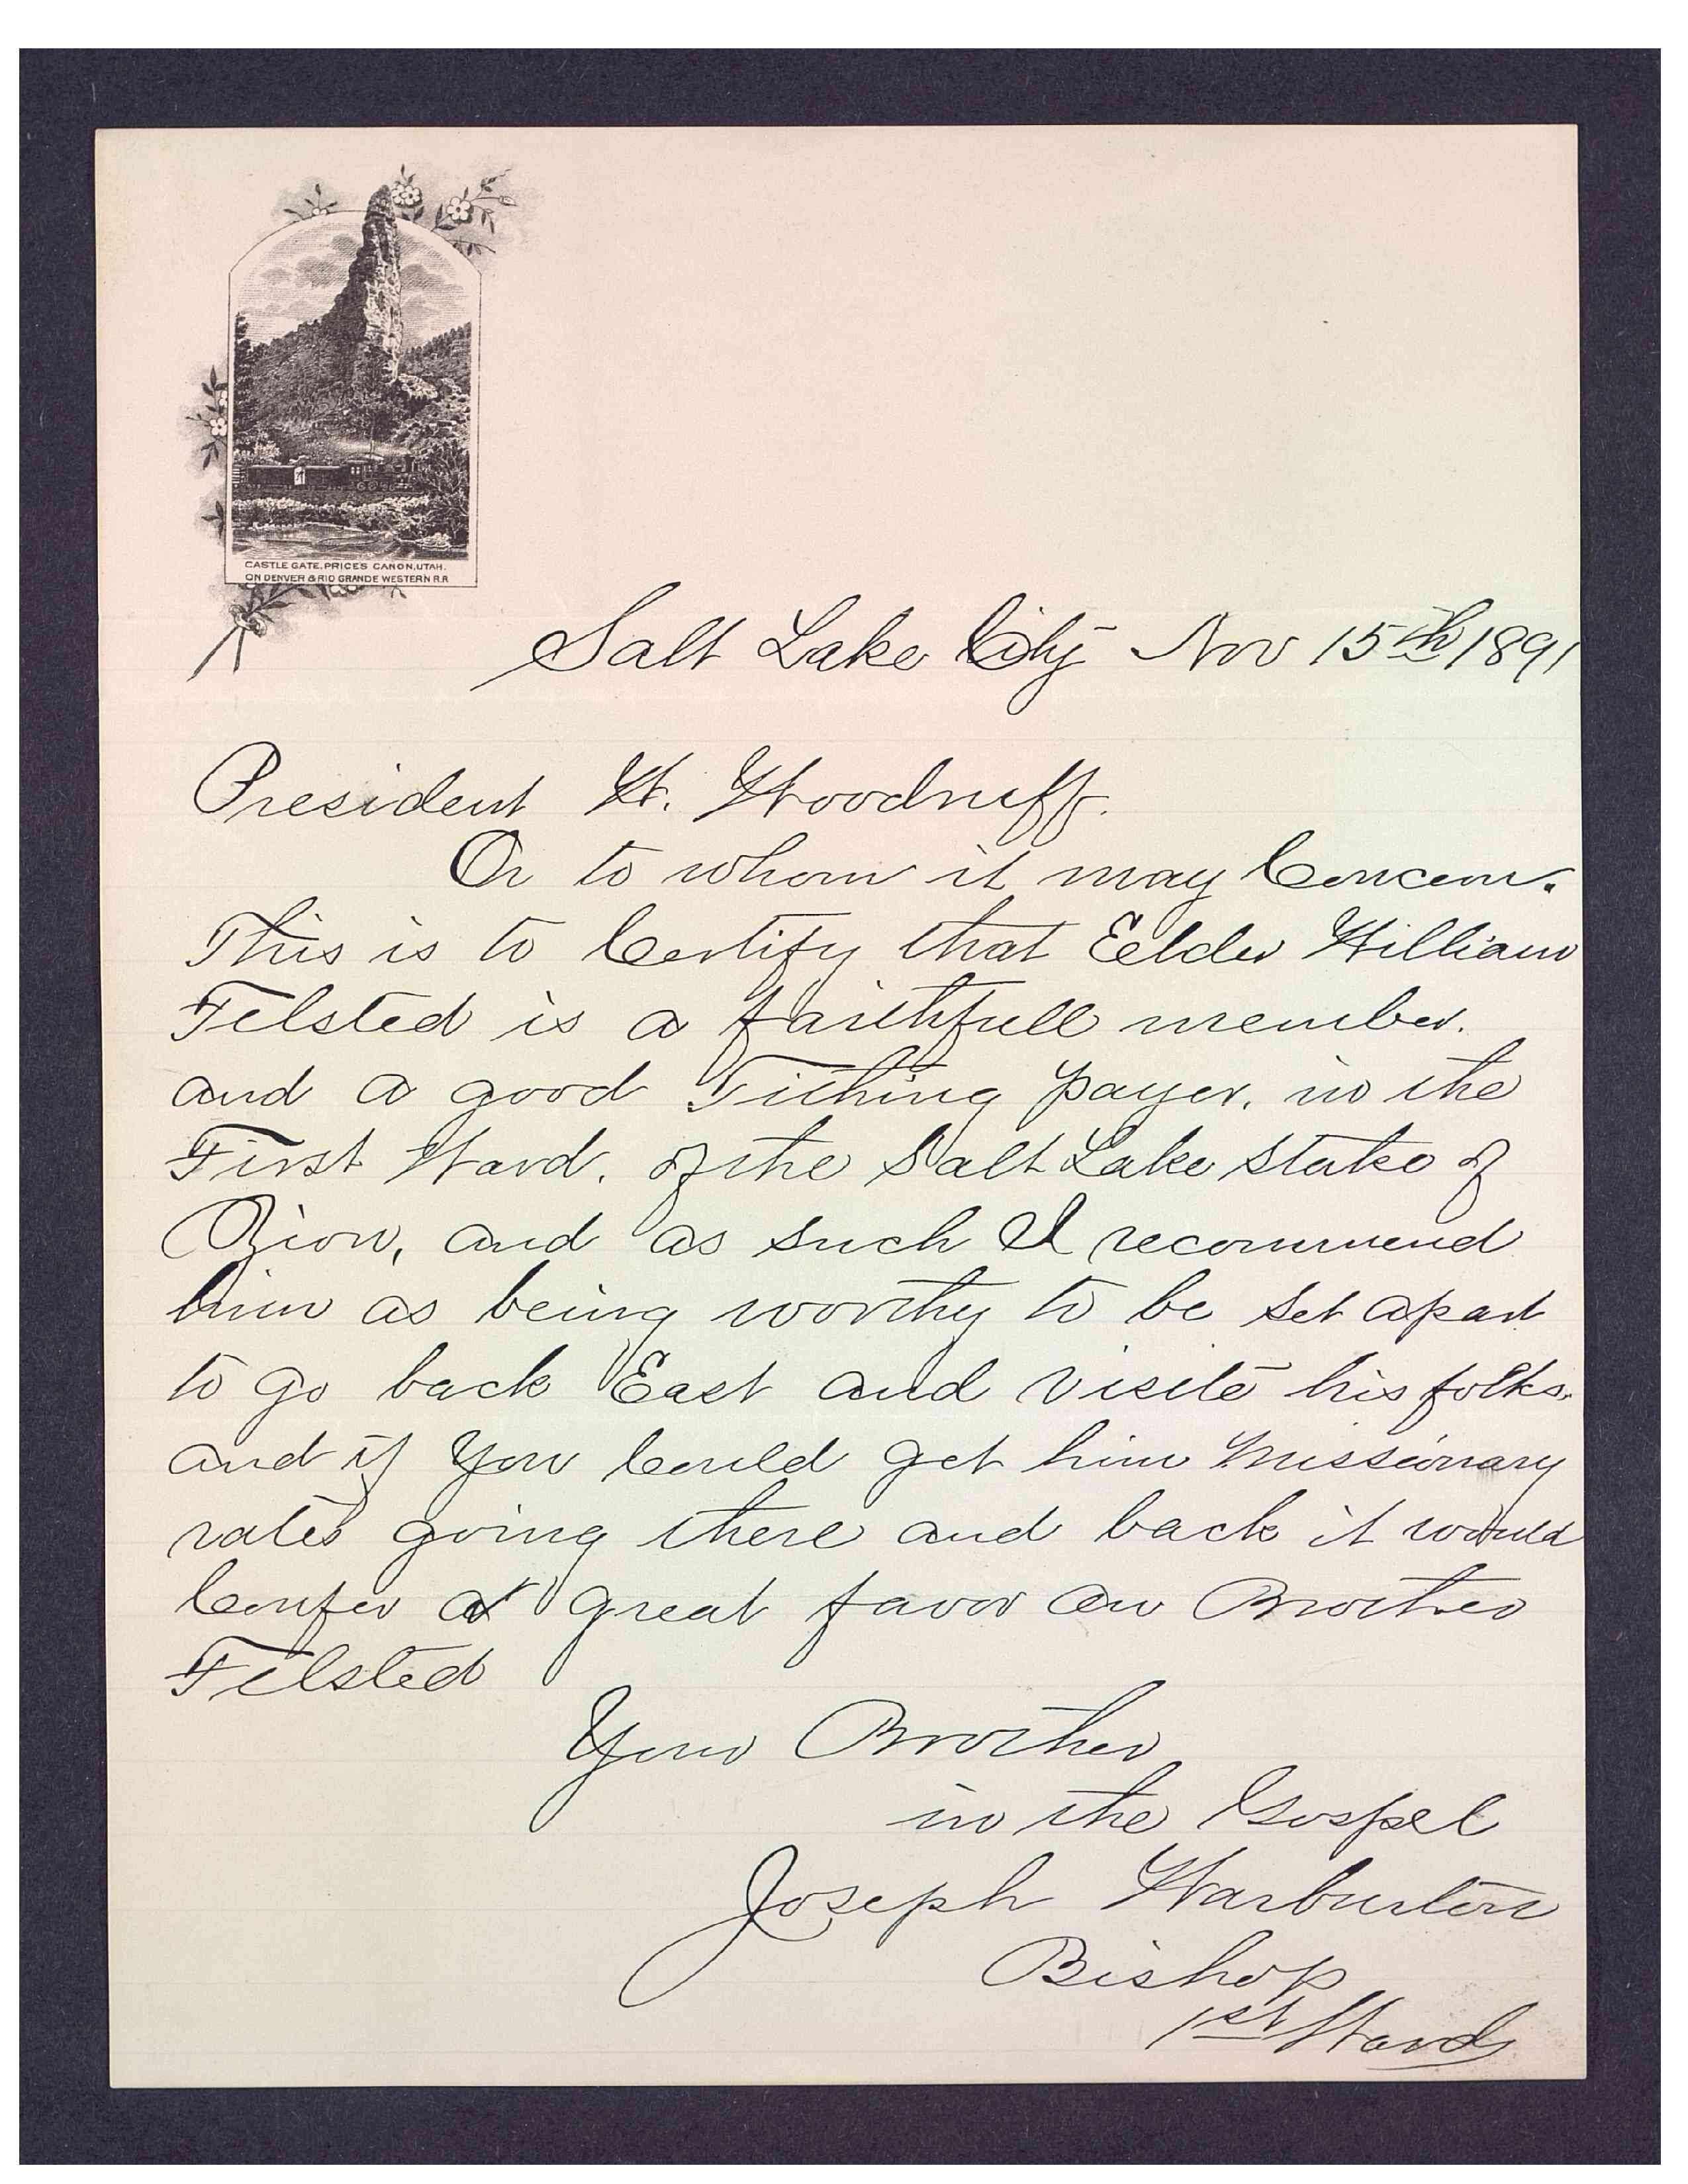 CASTLE GATE, PRICES CANON, UTAH.
ON DENVER & RIO GRANDE WESTERN R.R
Salt Lake City Nov 15th 1891
President W. Woodruff.
Or to whom it may Concern.
This is to Certify that Eelder William
Felsted is a faithfull member.
and a good Tithing payer, in the
First Ward, of the Salt Lake Stake of
Zion, and as such I recommend
him as being worthy to be set apart
to go back East and visite his folks.
and if You Could get him Missionary
rates going there and back it would
Confer a great favor on Brother
Felsted
Your Brother
in the Gospel
Joseph Warburton
Bishop
1st Ward